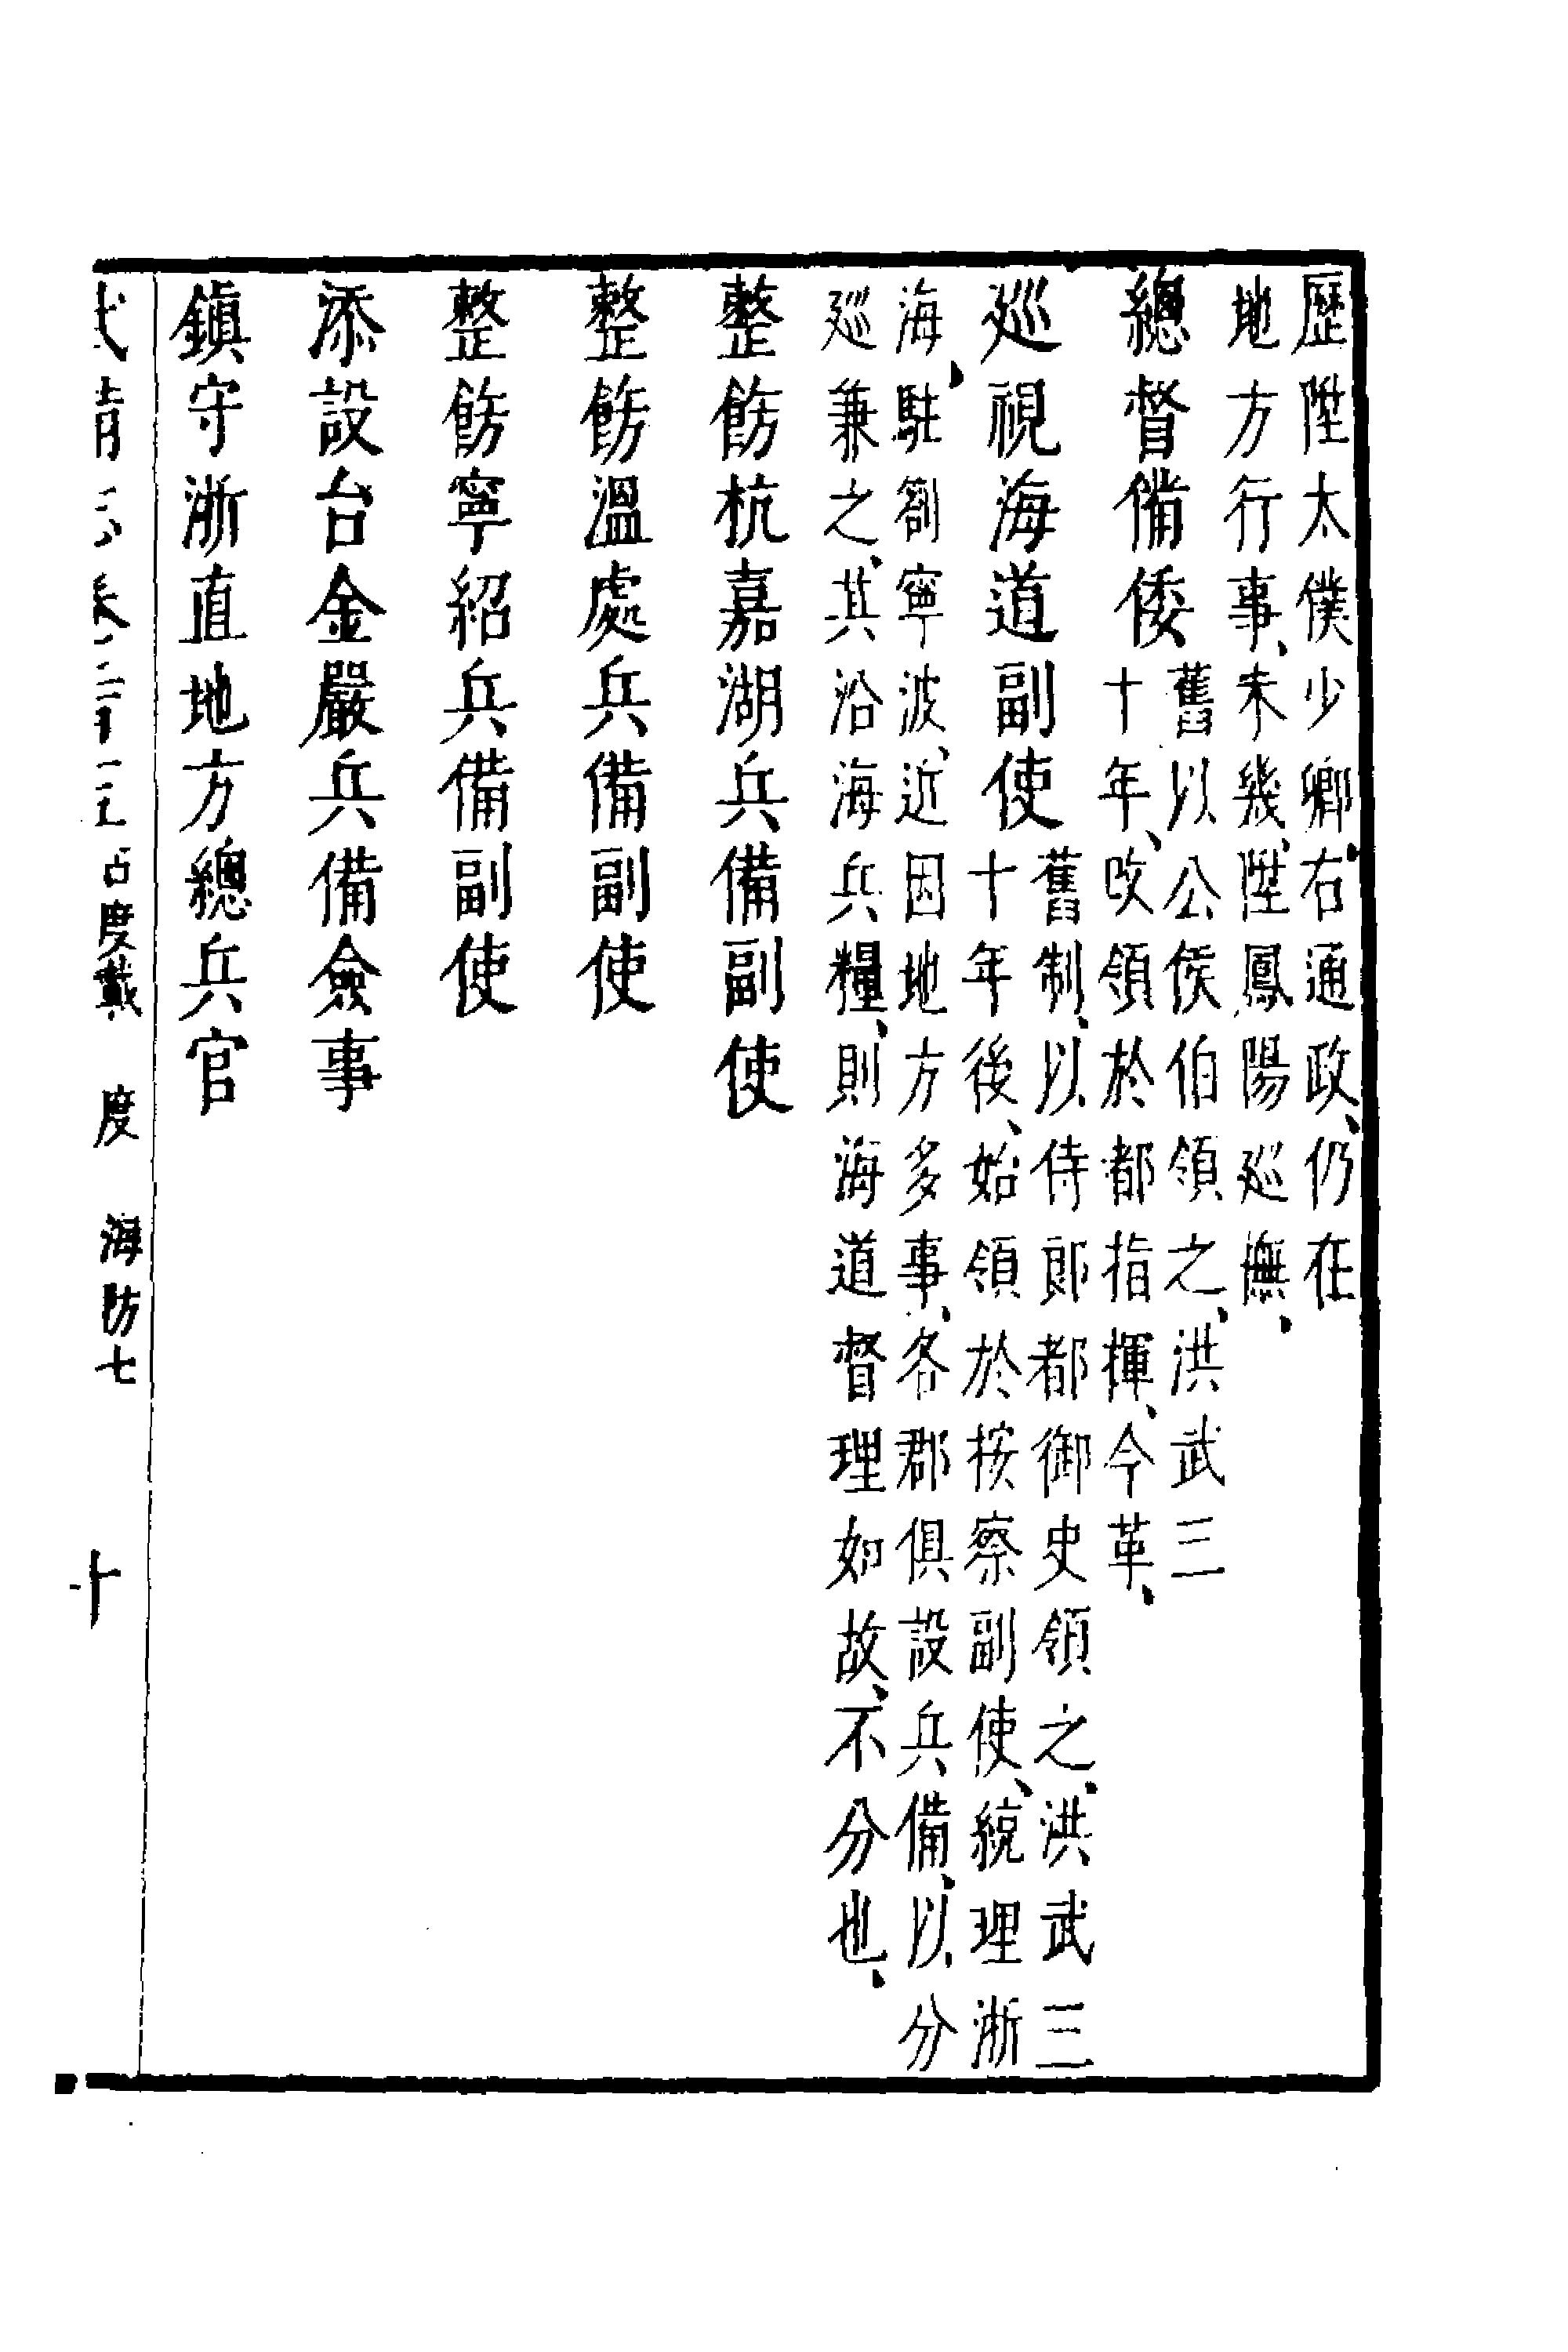 歷陞太僕少卿右通政、仍在
地方行事、未幾、陞鳳陽廵撫、
總督備倭
舊以公侯伯領之、洪武三
十年、改領於都指揮、今革、
廵視海道副使
舊制、以侍郎都御史領之、洪武三
十年後、始領於按察副使、統理浙
海、駐劄寧波、近因地方多事、各郡俱設兵備、以分
廵兼之、其沿海兵糧、則海道督理如故、不分也、
整飭杭嘉湖兵備副使
整飭溫處兵備副使
整飭寧紹兵備副使
添設台金嚴兵備僉事
鎮守浙直地方總兵官
占度載 度 海防七 十